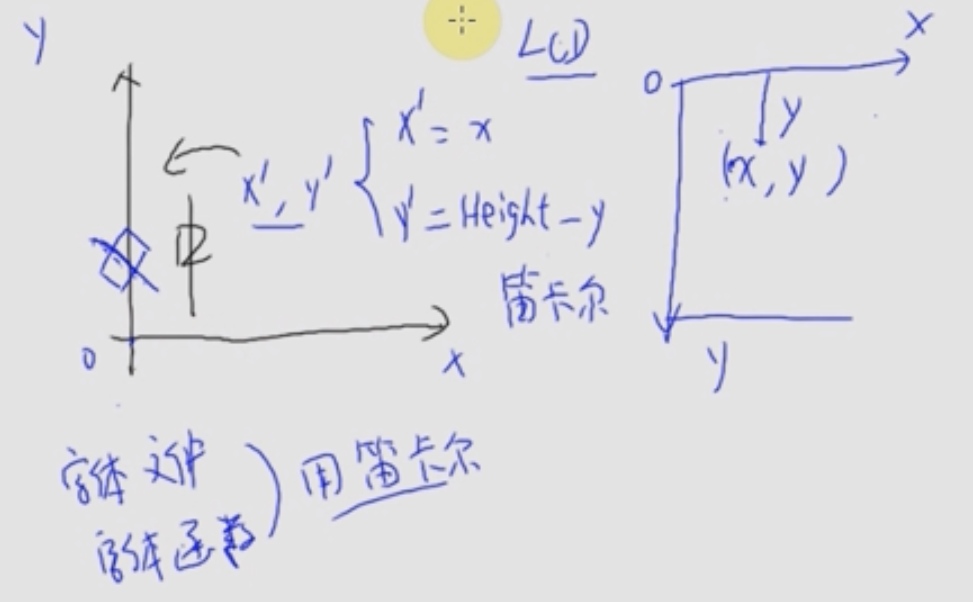 y
LCD
x
0
x' = x
y
x', y'
(x, y)
y' = Height - y
中
笛卡尔
0
x
y
字体文件
字体函数
用笛卡尔